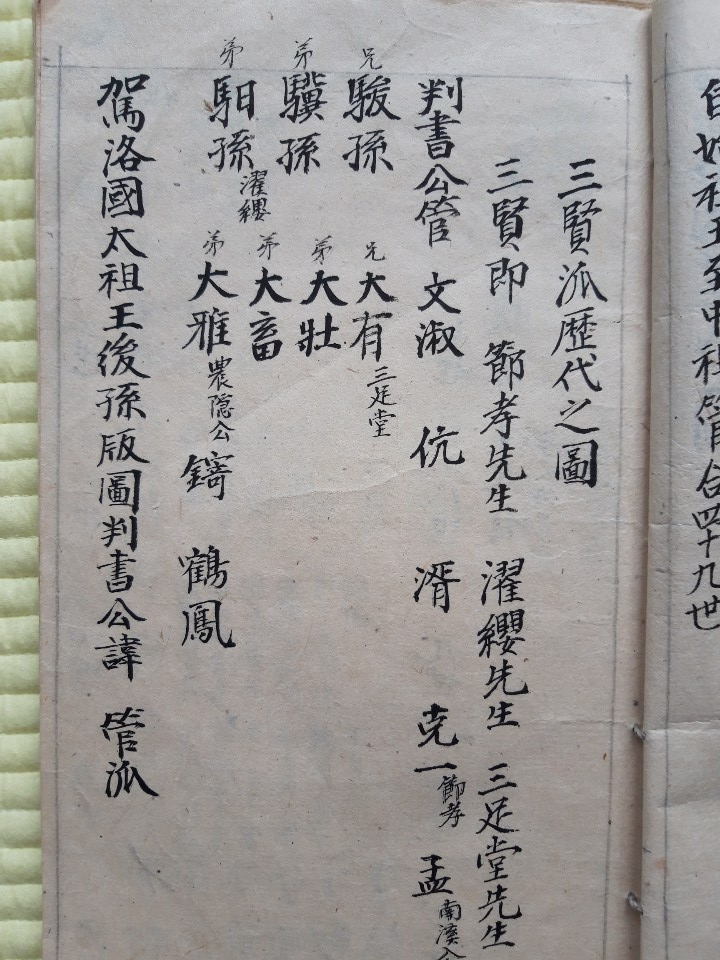 自始祖王至中祖管合四十九世
三賢泒歴代之圖
三賢即 節孝先生 濯纓先生 三足堂先生
判書公管 文淑 伉 湑 克一 節孝 孟 南溪公
兄 駿孫
弟 驥孫
弟 馹孫 濯纓
兄 大有 三足堂
弟 大壯
弟 大畜
弟 大雅 農隐公 鶴鳳
駕洛國太祖王後孫版圖判書公諱 管泒